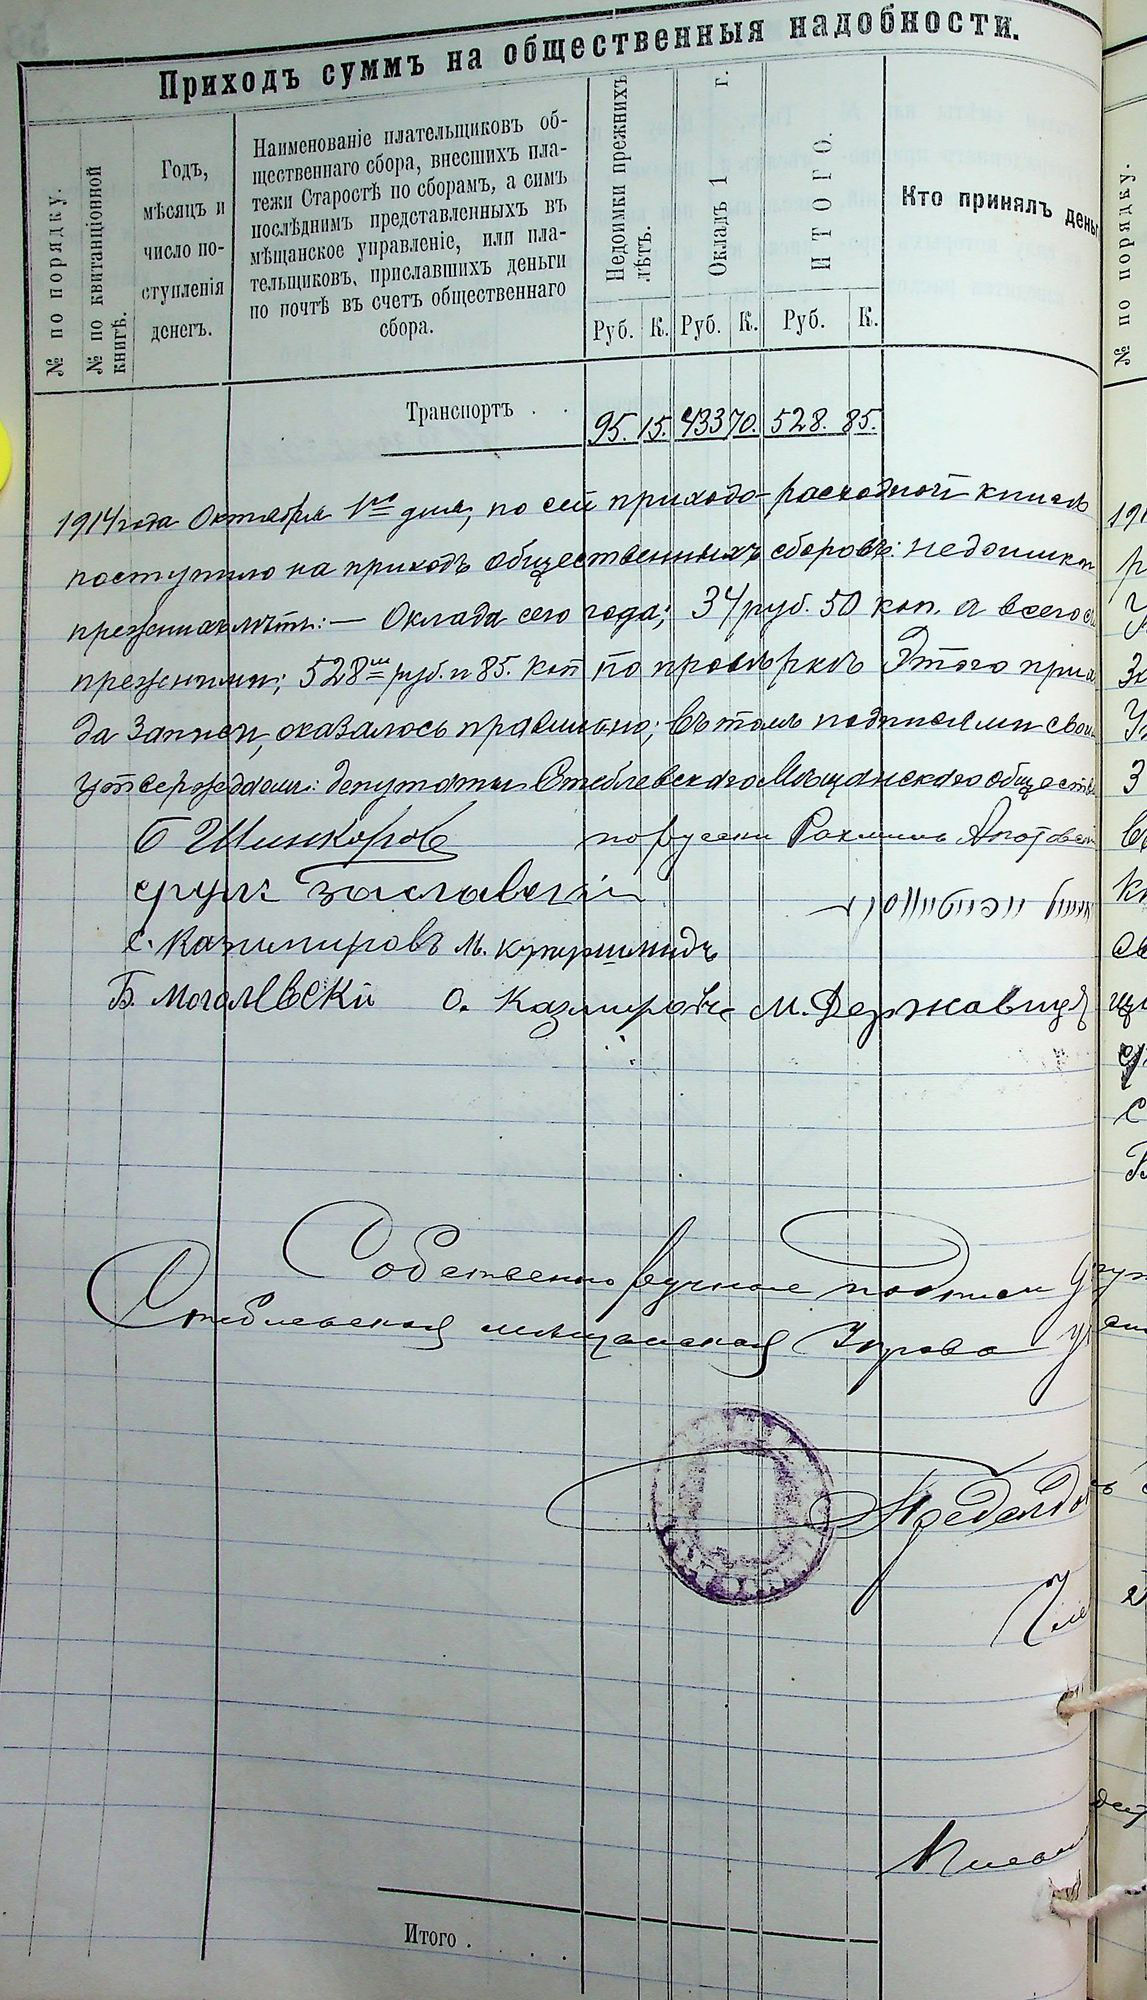 Приходъ суммъ на общественныя надобности.
№ по порядку.
№ по квитанціонной книгѣ.
Годъ,
мѣсяцъ и
число по-
ступленія
денегъ.
Наименованіе плательщиковъ об-
щественнаго сбора, внесшихъ пла-
тежи Старостѣ по сборамъ, а симъ
послѣднимъ представленныхъ въ
мѣщанское управленіе, или пла-
тельщиковъ, приславшихъ деньги
по почтѣ въ счетъ общественнаго
сбора.
Недоимки прежнихъ лѣтъ.
Окладъ 1 г.
ИТОГО.
Кто принялъ деньг
Руб. К. Руб. К. Руб. К.
Транспортъ . . 95. 15. 433 70. 528. 85.
1914 года Октября 1го дня, по сей приходо-расходной книгѣ
поступило на приходъ общественныхъ сборовъ: недоимки
прежнихъ лѣтъ: — Оклада сего года; 34 руб. 50 коп. а всего съ
прежними; 528 руб. и 85. коп по провѣркѣ Этого прихо
да записи, оказалось правильно; въ томъ подписями свои
утверждаемъ: депутаты Стеблевскаго Мѣщанскаго обществ
Б Шинкоров по русски Рахмиль
Срул Заславскій
С. Казимировъ М.
Б. Могалевски О. Казмировъ М. Державец
Собственно ручные подписи
Стеблевская мѣщанская Управа
Предсѣд
Чле
Письм
Итого . . . .
№ по порядку.